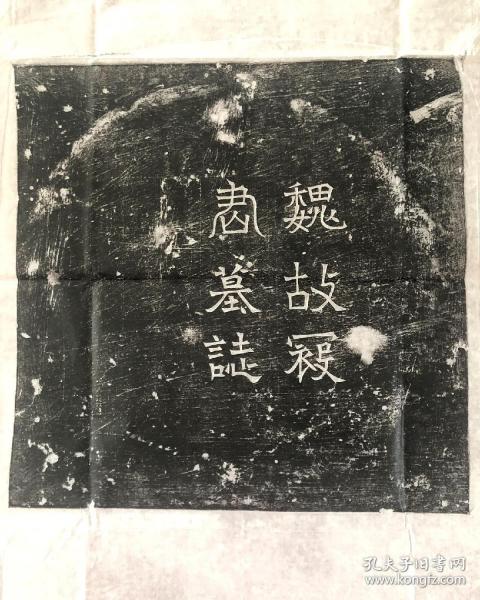 魏故寇
君墓誌
孔夫子旧书网
www.kongfz.com